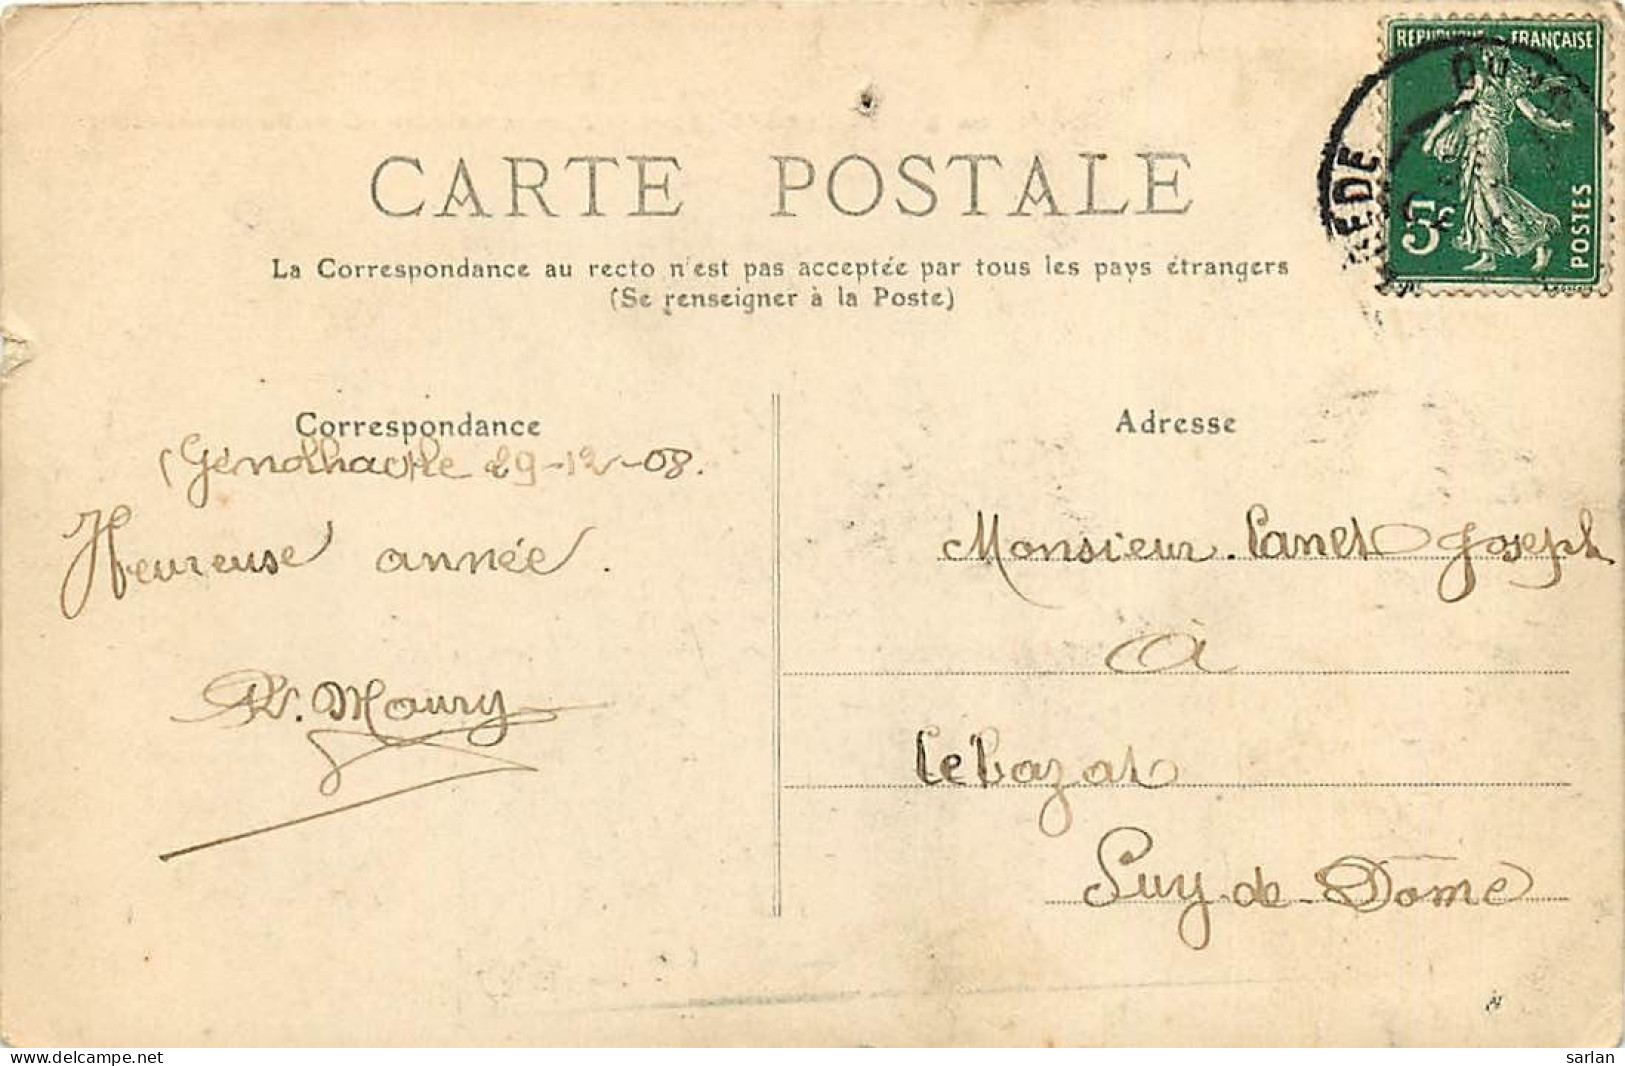 RÉPUBLIQUE FRANÇAISE
5c
POSTES
CARTE POSTALE
La Correspondance au recto n'est pas acceptée par tous les pays étrangers
(Se renseigner à la Poste)
Correspondance
Adresse
29-12-08.
Heureuse année.
Maury
Monsieur Canet Joseph
à
Puy-de-Dôme
sarlan
delcampe.net